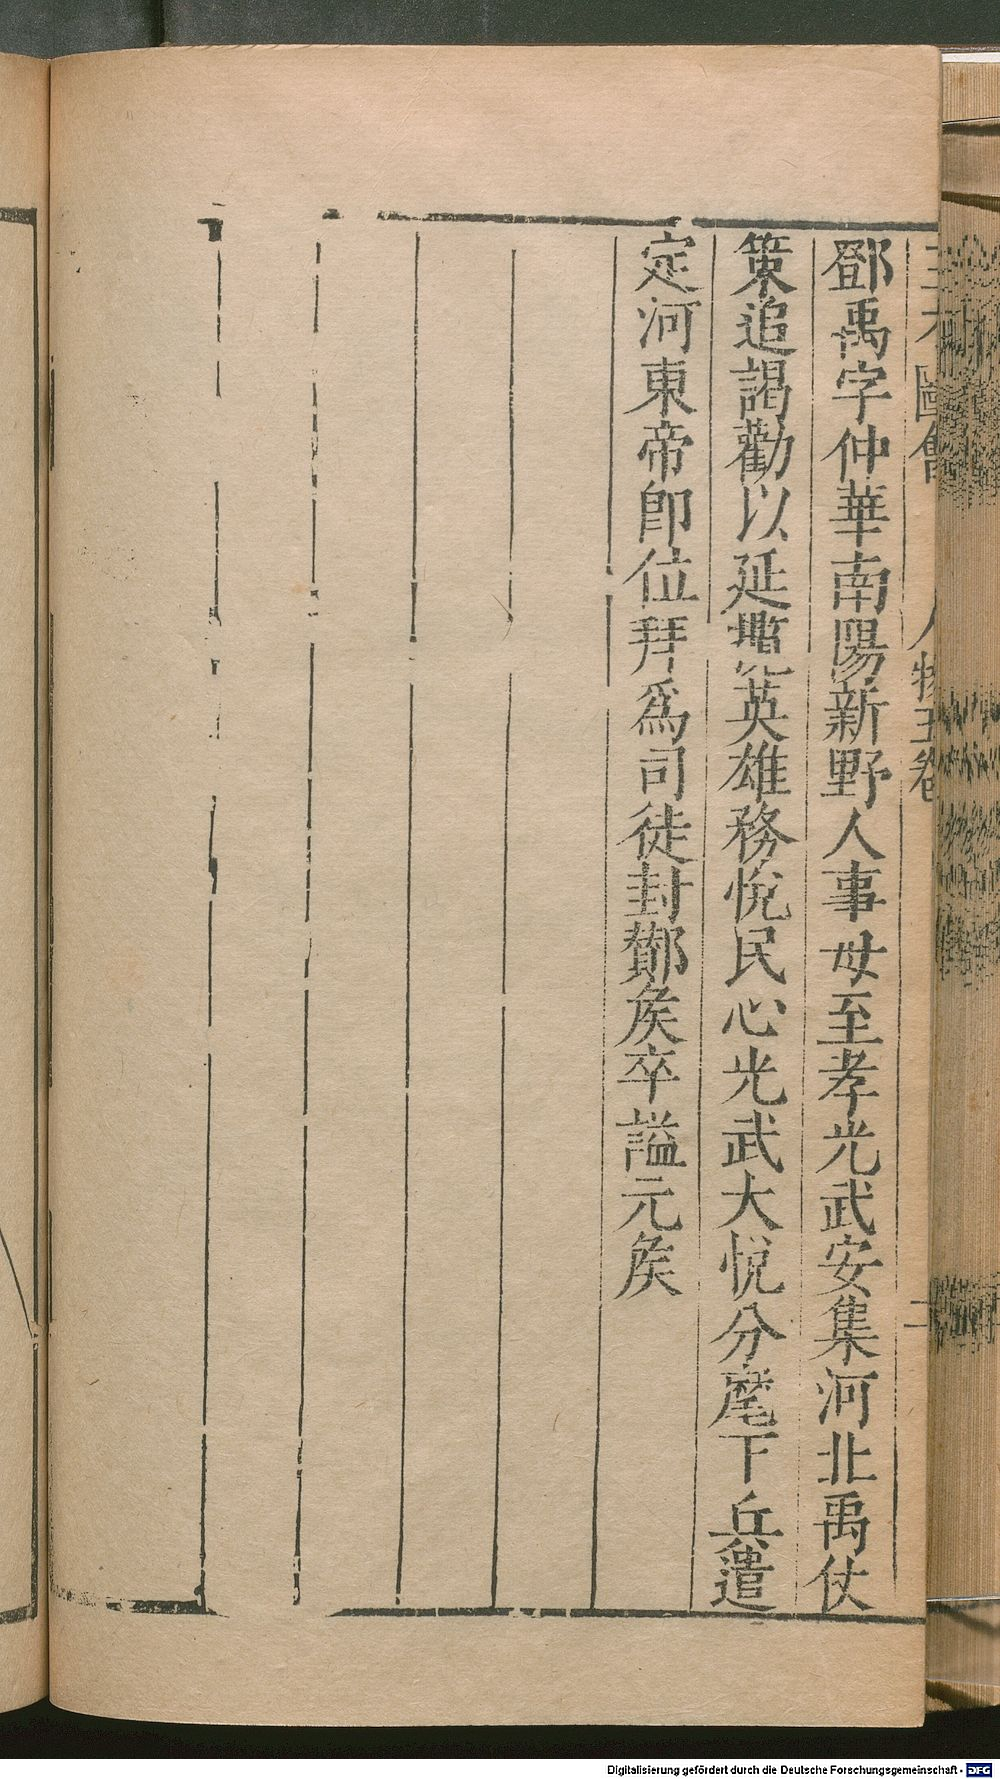 三才圖會 人物五卷
鄧禹字仲華南陽新野人事母至孝光武安集河北禹仗
策追謁勸以延攬英雄務悅民心光武大悅分麾下兵遣
定河東帝即位拜為司徒封酇侯卒謚元侯
Digitalisierung gefördert durch die Deutsche Forschungsgemeinschaft - DFG